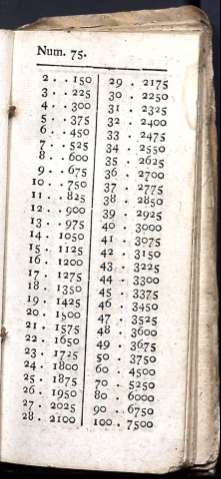 Num. 75.
2 . . 150
3 . . 225
4 . . 300
5 . . 375
6 . . 450
7 . . 525
8 . . 600
9 . . 675
10 . . 750
11 . . 825
12 . . 900
13 . . 975
14 . 1050
15 . 1125
16 . 1200
17 . 1275
18 . 1350
19 . 1425
20 . 1500
21 . 1575
22 . 1650
23 . 1725
24 . 1800
25 . 1875
26 . 1950
27 . 2025
28 . 2100
29 . 2175
30 . 2250
31 . 2325
32 . 2400
33 . 2475
34 . 2550
35 . 2625
36 . 2700
37 . 2775
38 . 2850
39 . 2925
40 . 3000
41 . 3075
42 . 3150
43 . 3225
44 . 3300
45 . 3375
46 . 3450
47 . 3525
48 . 3600
49 . 3675
50 . 3750
60 . 4500
70 . 5250
80 . 6000
90 . 6750
100 . 7500